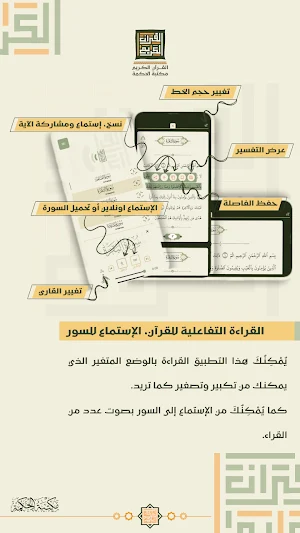 القرآن الكريم
مكتبة الحكمة
تغيير حجم الخط
نسخ، إستماع ومشاركة الآية
عرض التفسير
الإستماع اونلاين أو تحميل السورة
حفظ الفاصلة
تغيير القارئ
القراءة التفاعلية للقرآن، الإستماع للسور
يُمْكِنُكَ هذا التطبيق القراءة بالوضع المتغير الذي
يمكنك من تكبير وتصغير كما تريد.
كما يُمْكِنُكَ من الإستماع إلى السور بصوت عدد من
القراء.
مكتبة الحكمة